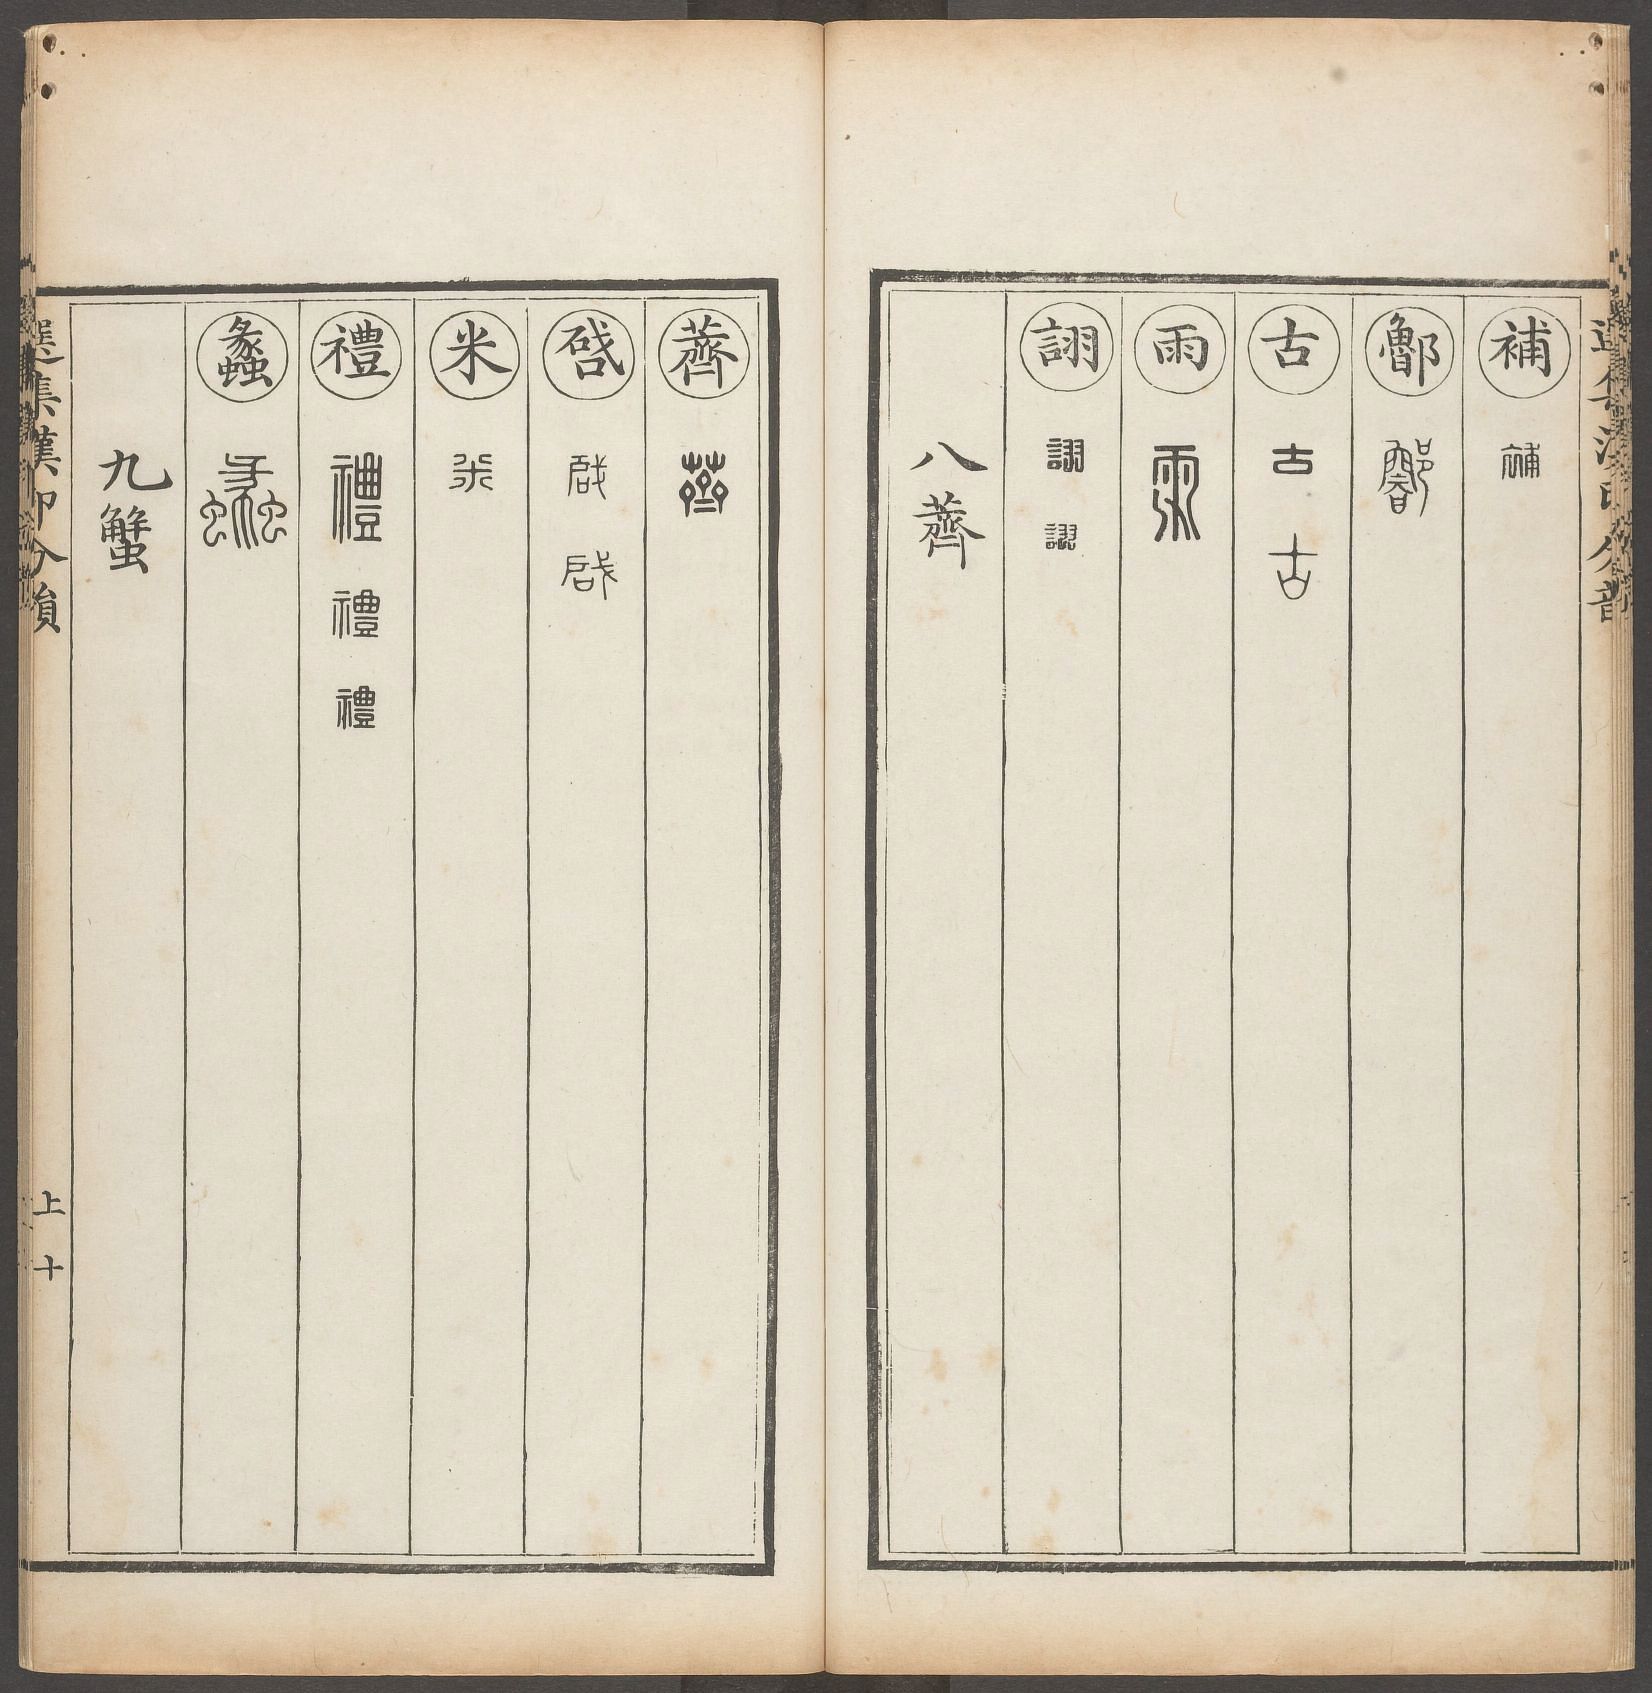 補 補
鄫
古 古 古
雨 雨
詡 詡 詡
八薺
薺 薺
啓 啟 啟
米 米
禮 禮 禮 禮
蠡 蠡
九蟹
選集漢印分韻
上
十